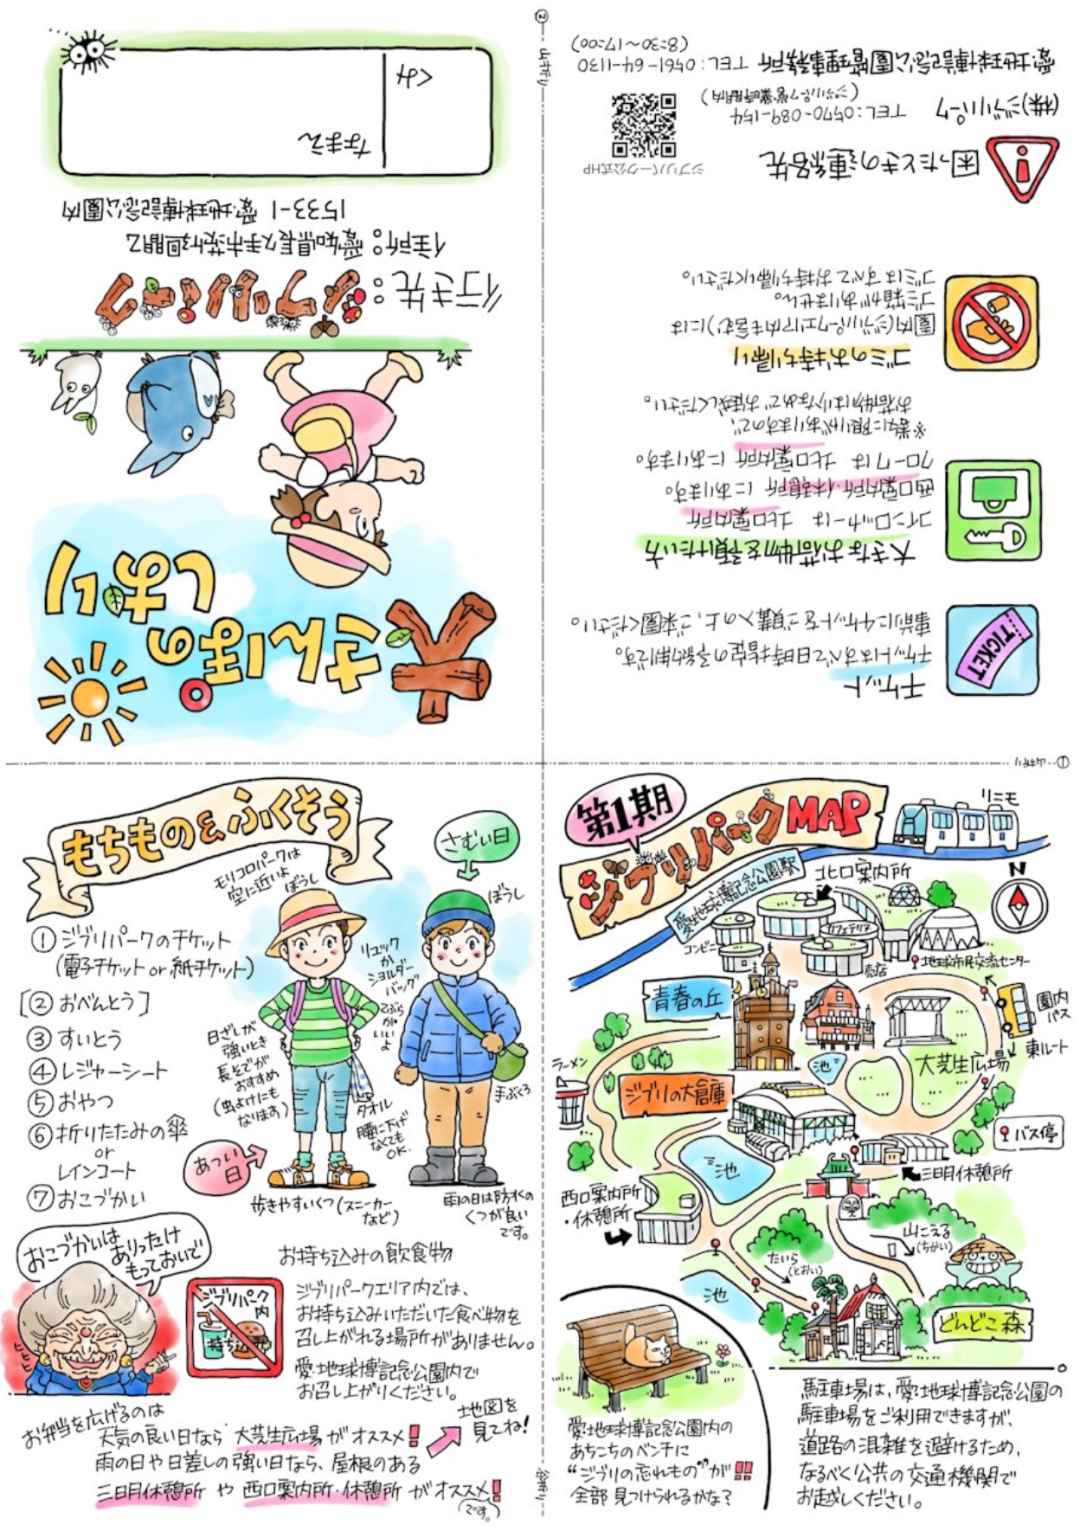 ②
山折り
さんぽの
しおり
行き先：ジブリパーク
住所：愛知県長久手市茨ケ廻間乙
1533-1 愛・地球博記念公園内
なまえ
くみ
チケット
チケットはすべて日時指定の予約制です。
事前にチケットをご購入の上、ご来園ください。
TICKET
大きなお荷物を預けたい方
コインロッカーは 北口案内所
西口案内所・休憩所 にあります。
クロークは 北口案内所 にあります。
※数に限りがありますので、
お荷物は少なめでお越しください。
ゴミのお持ち帰り
園内(ジブリパークエリア内も含む)には
ゴミ箱がありません。
ゴミはすべてお持ち帰りください。
困ったときの連絡先
ジブリパーク公式HP
(株)ジブリパーク TEL:0570-089-154
(ジブリパーク営業時間内)
愛・地球博記念公園管理事務所 TEL:0561-64-1130
(8:30〜17:00)
①
もちもの&ふくそう
さむい日
モリコロパークは
空に近いよ
ぼうし
ぼうし
①ジブリパークのチケット
(電子チケット or 紙チケット)
[②おべんとう]
③すいとう
④レジャーシート
⑤おやつ
⑥折りたたみの傘
or
レインコート
⑦おこづかい
リュック
か
ショルダー
バッグ
てぶらが
いいよ
日ざしが
強いとき
長そでが
おすすめ
(虫よけにも
なります)
タオル
腰に下げ
なくても
OK.
手ぶくろ
あつい
日
歩きやすいくつ(スニーカー
など)
雨の日は防水の
くつが良い
です。
おこづかいは
ありったけ
もっておいで
ジブリパーク
内
持ち込み
お持ち込みの飲食物
ジブリパークエリア内では、
お持ち込みいただいた食べ物を
召し上がれる場所がありません。
愛・地球博記念公園内で
お召し上がりください。
お弁当を広げるのは
天気の良い日なら 大芝生広場 がオススメ!
雨の日や日差しの強い日なら、屋根のある
三日月休憩所 や 西口案内所・休憩所 がオススメ!
(です。)
地図を
見てね!
第1期
ジブリパークMAP
リニモ
愛・地球博記念公園駅
北口案内所
N
コンビニ
カフェテリア
売店
地球市民交流センター
青春の丘
園内
バス
東ルート
ラーメン
池
大芝生広場
ジブリの大倉庫
バス停
池
三日月休憩所
西口案内所
・休憩所
山こえる
(ちかい)
たいら
(とおい)
池
どんどこ森
愛・地球博記念公園内の
あちこちのベンチに
“ジブリの忘れもの”が!!
全部 見つけられるかな?
駐車場は、愛・地球博記念公園の
駐車場をご利用できますが、
道路の混雑を避けるため、
なるべく公共の交通機関で
お越しください。